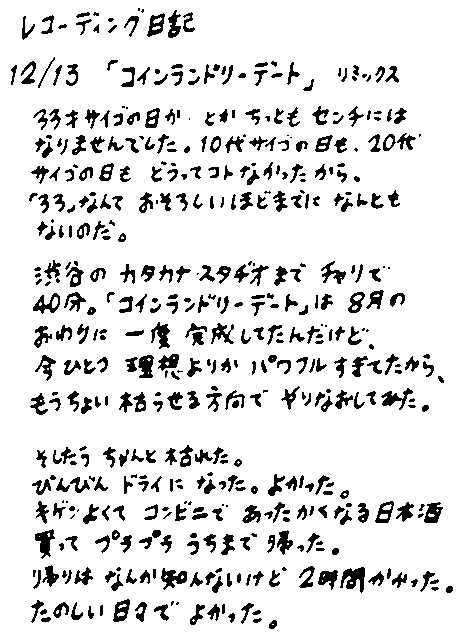 レコーディング日記
12/13 「コインランドリーデート」 リミックス
33才サイゴの日か とか ちっとも センチには
なりませんでした。10代サイゴの日も、20代
サイゴの日も どうってコトなかったから、
「33」なんて おそろしいほどまでに なんとも
ないのだ。
渋谷の カタカナ・スタヂオまで チャリで
40分。「コインランドリーデート」は 8月の
おわりに 一度 完成してたんだけど、
今ひとつ 理想よりか パワフルすぎてたから、
もうちょい 枯らせる方向で やりなおしてみた。
そしたら ちゃんと枯れた。
びんびん ドライに なった。よかった。
キゲンよくて コンビニで あったかくなる日本酒
買って プラプラ うちまで 帰った。
帰りは なんか知んないけど 2時間かかった。
たのしい日々で よかった。